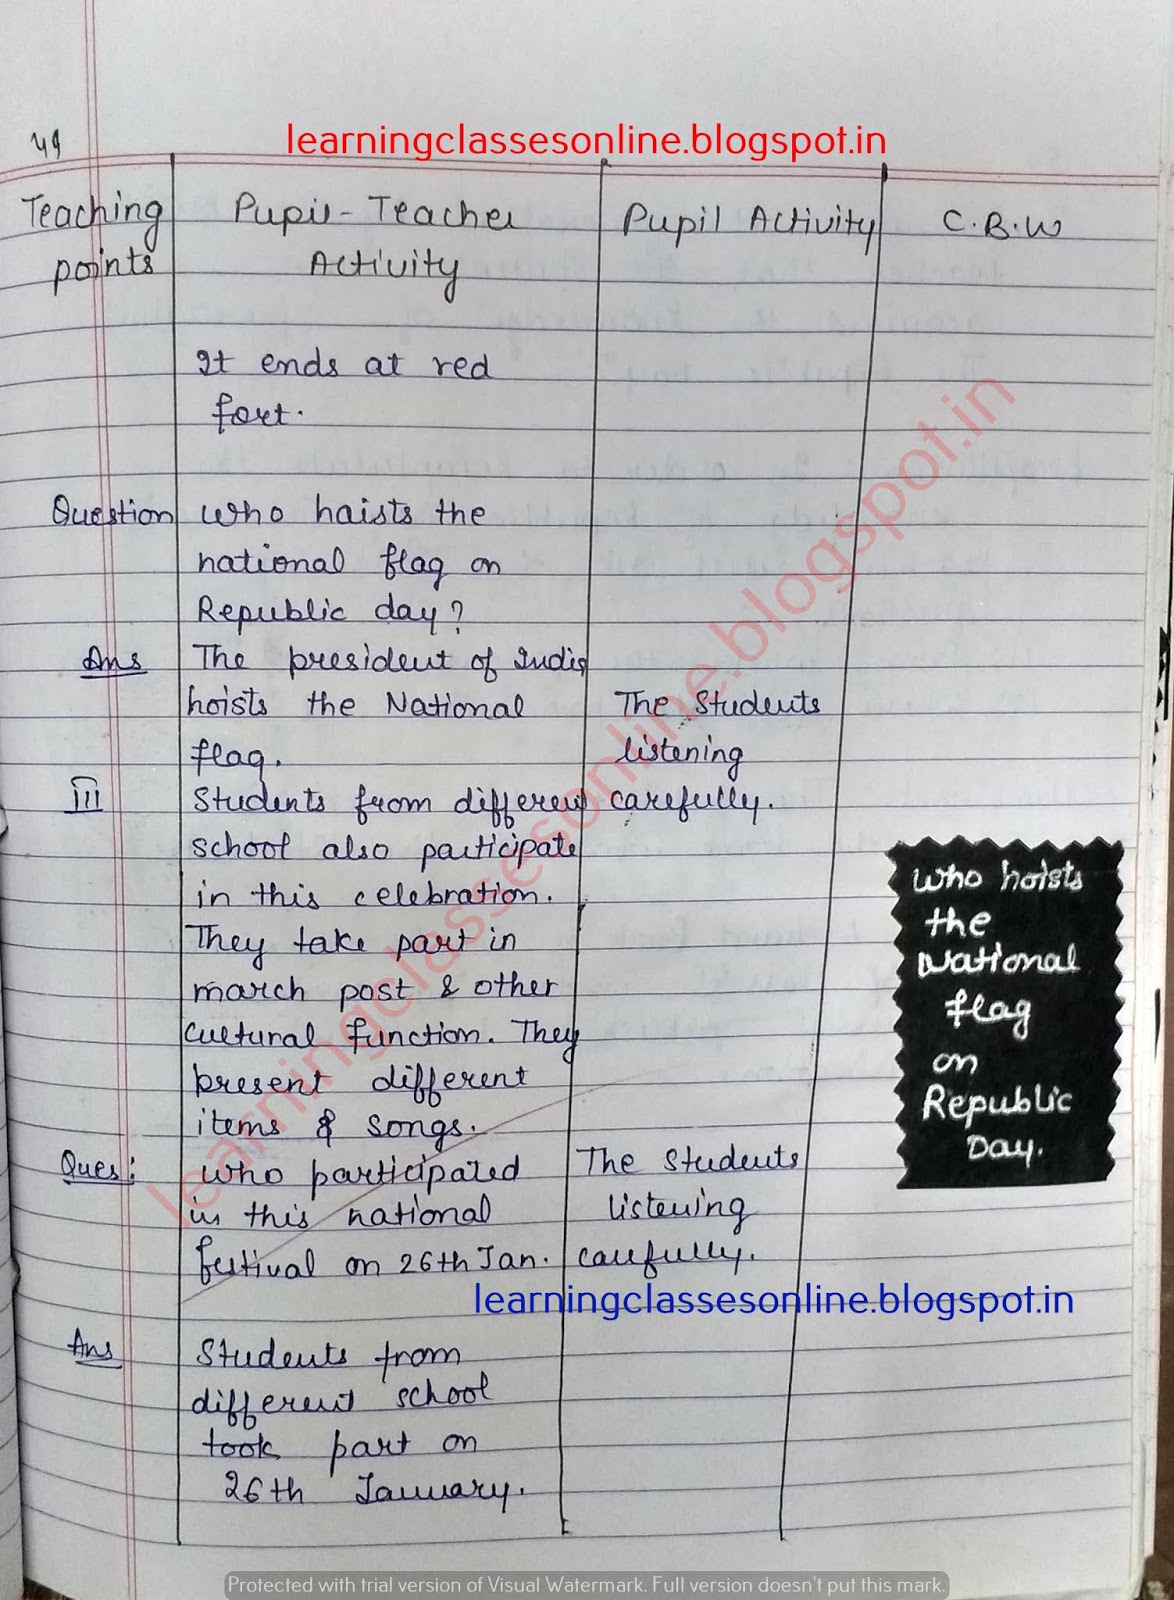 49
learningclassesonline.blogspot.in
Teaching points
Pupil-Teacher Activity
Pupil Activity
C.B.W
It ends at red
fort.
Question
who haists the
national flag on
Republic day?
Ans
The president of India
hoists the National
flag.
The Students
listening
carefully.
III
Students from different
school also participate
in this celebration.
They take part in
march post & other
cultural function. They
present different
items & songs.
who hoists
the
National
flag
on
Republic
Day.
Ques:
who participated
in this national
festival on 26th Jan.
The Students
listening
carefully.
learningclassesonline.blogspot.in
Ans
Students from
different school
took part on
26th January.
learningclassesonline.blogspot.in
Protected with trial version of Visual Watermark. Full version doesn't put this mark.